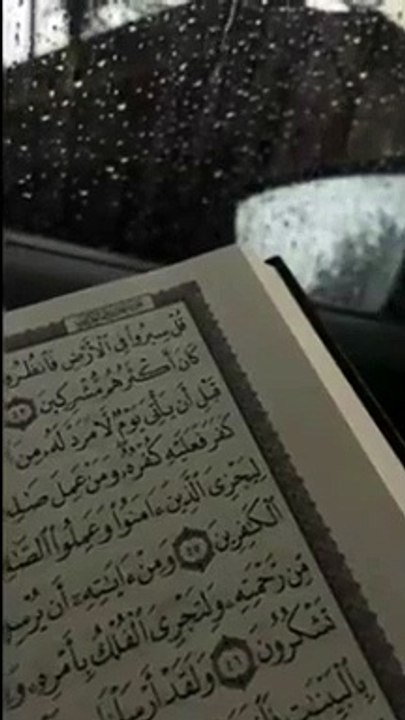 قُلْ سِيرُوا۟ فِى ٱلْأَرْضِ فَٱنظُرُوا۟
كَانَ أَكْثَرُهُم مُّشْرِكِينَ ٤٢
قَبْلِ أَن يَأْتِىَ يَوْمٌ لَّا مَرَدَّ لَهُۥ مِنَ
كَفَرَ فَعَلَيْهِ كُفْرُهُۥ وَمَنْ عَمِلَ صَٰلِحًا
لِيَجْزِىَ ٱلَّذِينَ ءَامَنُوا۟ وَعَمِلُوا۟ ٱلصَّٰ
ٱلْكَٰفِرِينَ ٤٥ وَمِنْ ءَايَٰتِهِۦٓ أَن يُرْسِلَ
مِّن رَّحْمَتِهِۦ وَلِتَجْرِىَ ٱلْفُلْكُ بِأَمْرِهِۦ وَ
تَشْكُرُونَ ٤٦ وَلَقَدْ أَرْسَلْنَا
بِٱلْبَيِّنَٰتِ